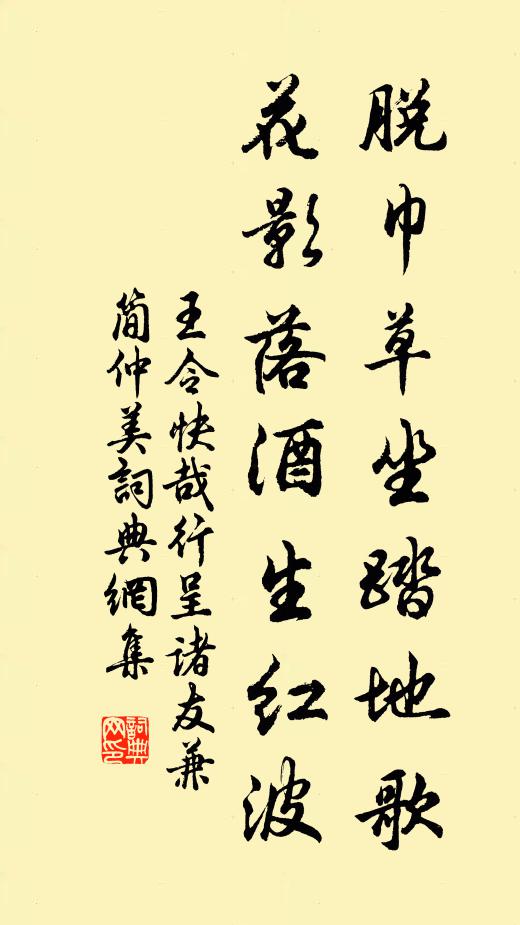 脱巾草坐踏地歌
花影落酒生红波
王令快哉行呈諸友兼
简仲美詞典網集
詞典
网印